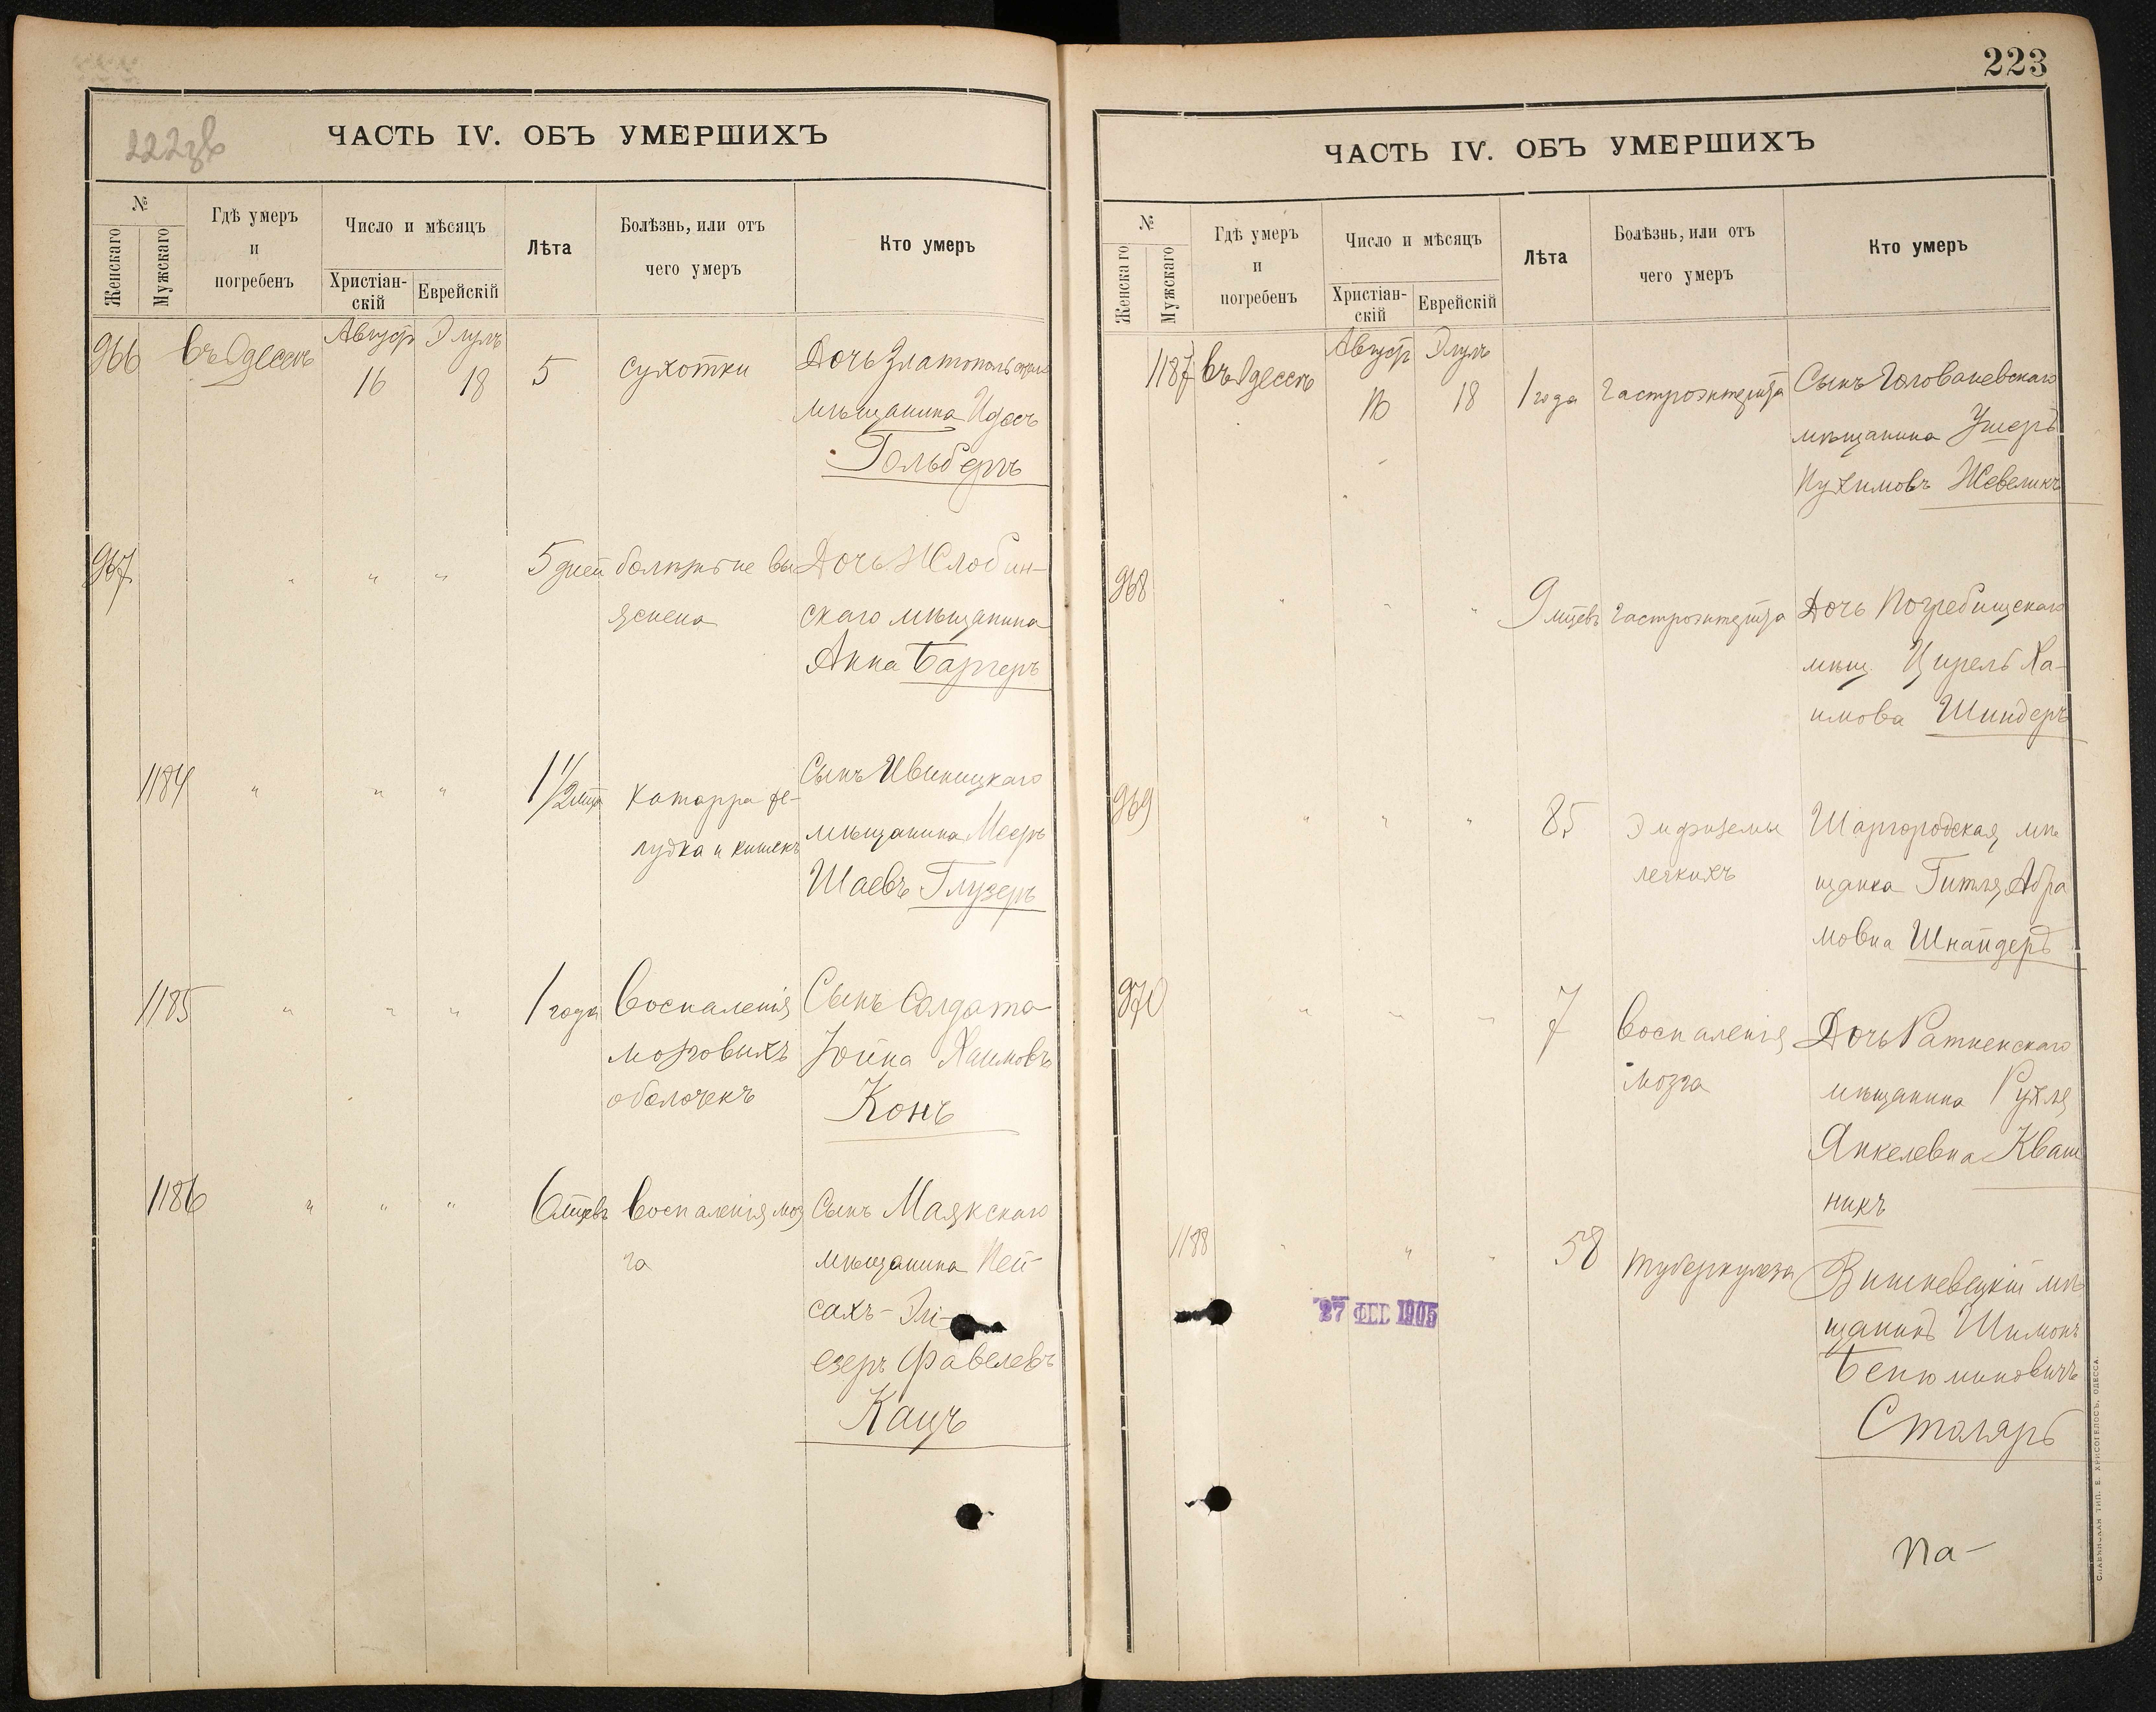 ЧАСТЬ IV. ОБЪ УМЕРШИХЪ
№
Женскаго
Мужскаго
Гдѣ умеръ
и
погребенъ
Число и мѣсяцъ
Христіан-
скій
Еврейскій
Лѣта
Болѣзнь, или отъ
чего умеръ
Кто умеръ
966 Въ Одессѣ Август Элулъ
16 18 5 сухотки Дочь Златопольскаго
мѣщанина Идесъ
Гольбергъ
967 " " " 5 дней болѣзнь не вы Дочь Жлобин-
яснена скаго мѣщанина
Анна Баргеръ
1184 " " " 1 1/2 катарра же- Сынъ Ивницкаго
лудка и кишекъ мѣщанина Мееръ
Шаевъ Глузеръ
1185 " " " 1 года Воспаленія Сынъ Солдата
мозговыхъ Іойна Хаимовъ
оболочекъ Конъ
1186 " " " 6 мцевъ Воспаленія моз Сынъ Маякскаго
га мѣщанина Пей-
сахъ-Эли-
езеръ Фавелевъ
Кацъ
223
ЧАСТЬ IV. ОБЪ УМЕРШИХЪ
№
Женскаго
Мужскаго
Гдѣ умеръ
и
погребенъ
Число и мѣсяцъ
Христіан-
скій
Еврейскій
Лѣта
Болѣзнь, или отъ
чего умеръ
Кто умеръ
1187 Въ Одессѣ Август Элулъ
16 18 1 года Гастроэнтерита Сынъ Голованевскаго
мѣщанина Ушеръ
Нухимовъ Жевеликъ
968 " " " 9 мцевъ Гастроэнтерита Дочь Погребищскаго
мѣщ. Цирель Ха-
имова Шиндеръ
969 " " " 85 Эмфиземы Шаргородская мѣ
легкихъ щанка Гитля Абра
мовна Шнайдеръ
970 " " " 7 Воспаленія Дочь Ратненскаго
мозга мѣщанина Рухля
Янкелевна Кваш
никъ
1188 " " " 58 туберкулеза Вишневецкій мѣ
щанинъ Шимонъ
Беніоминовичъ
Столяръ
27 ФЕВ 1905
На-